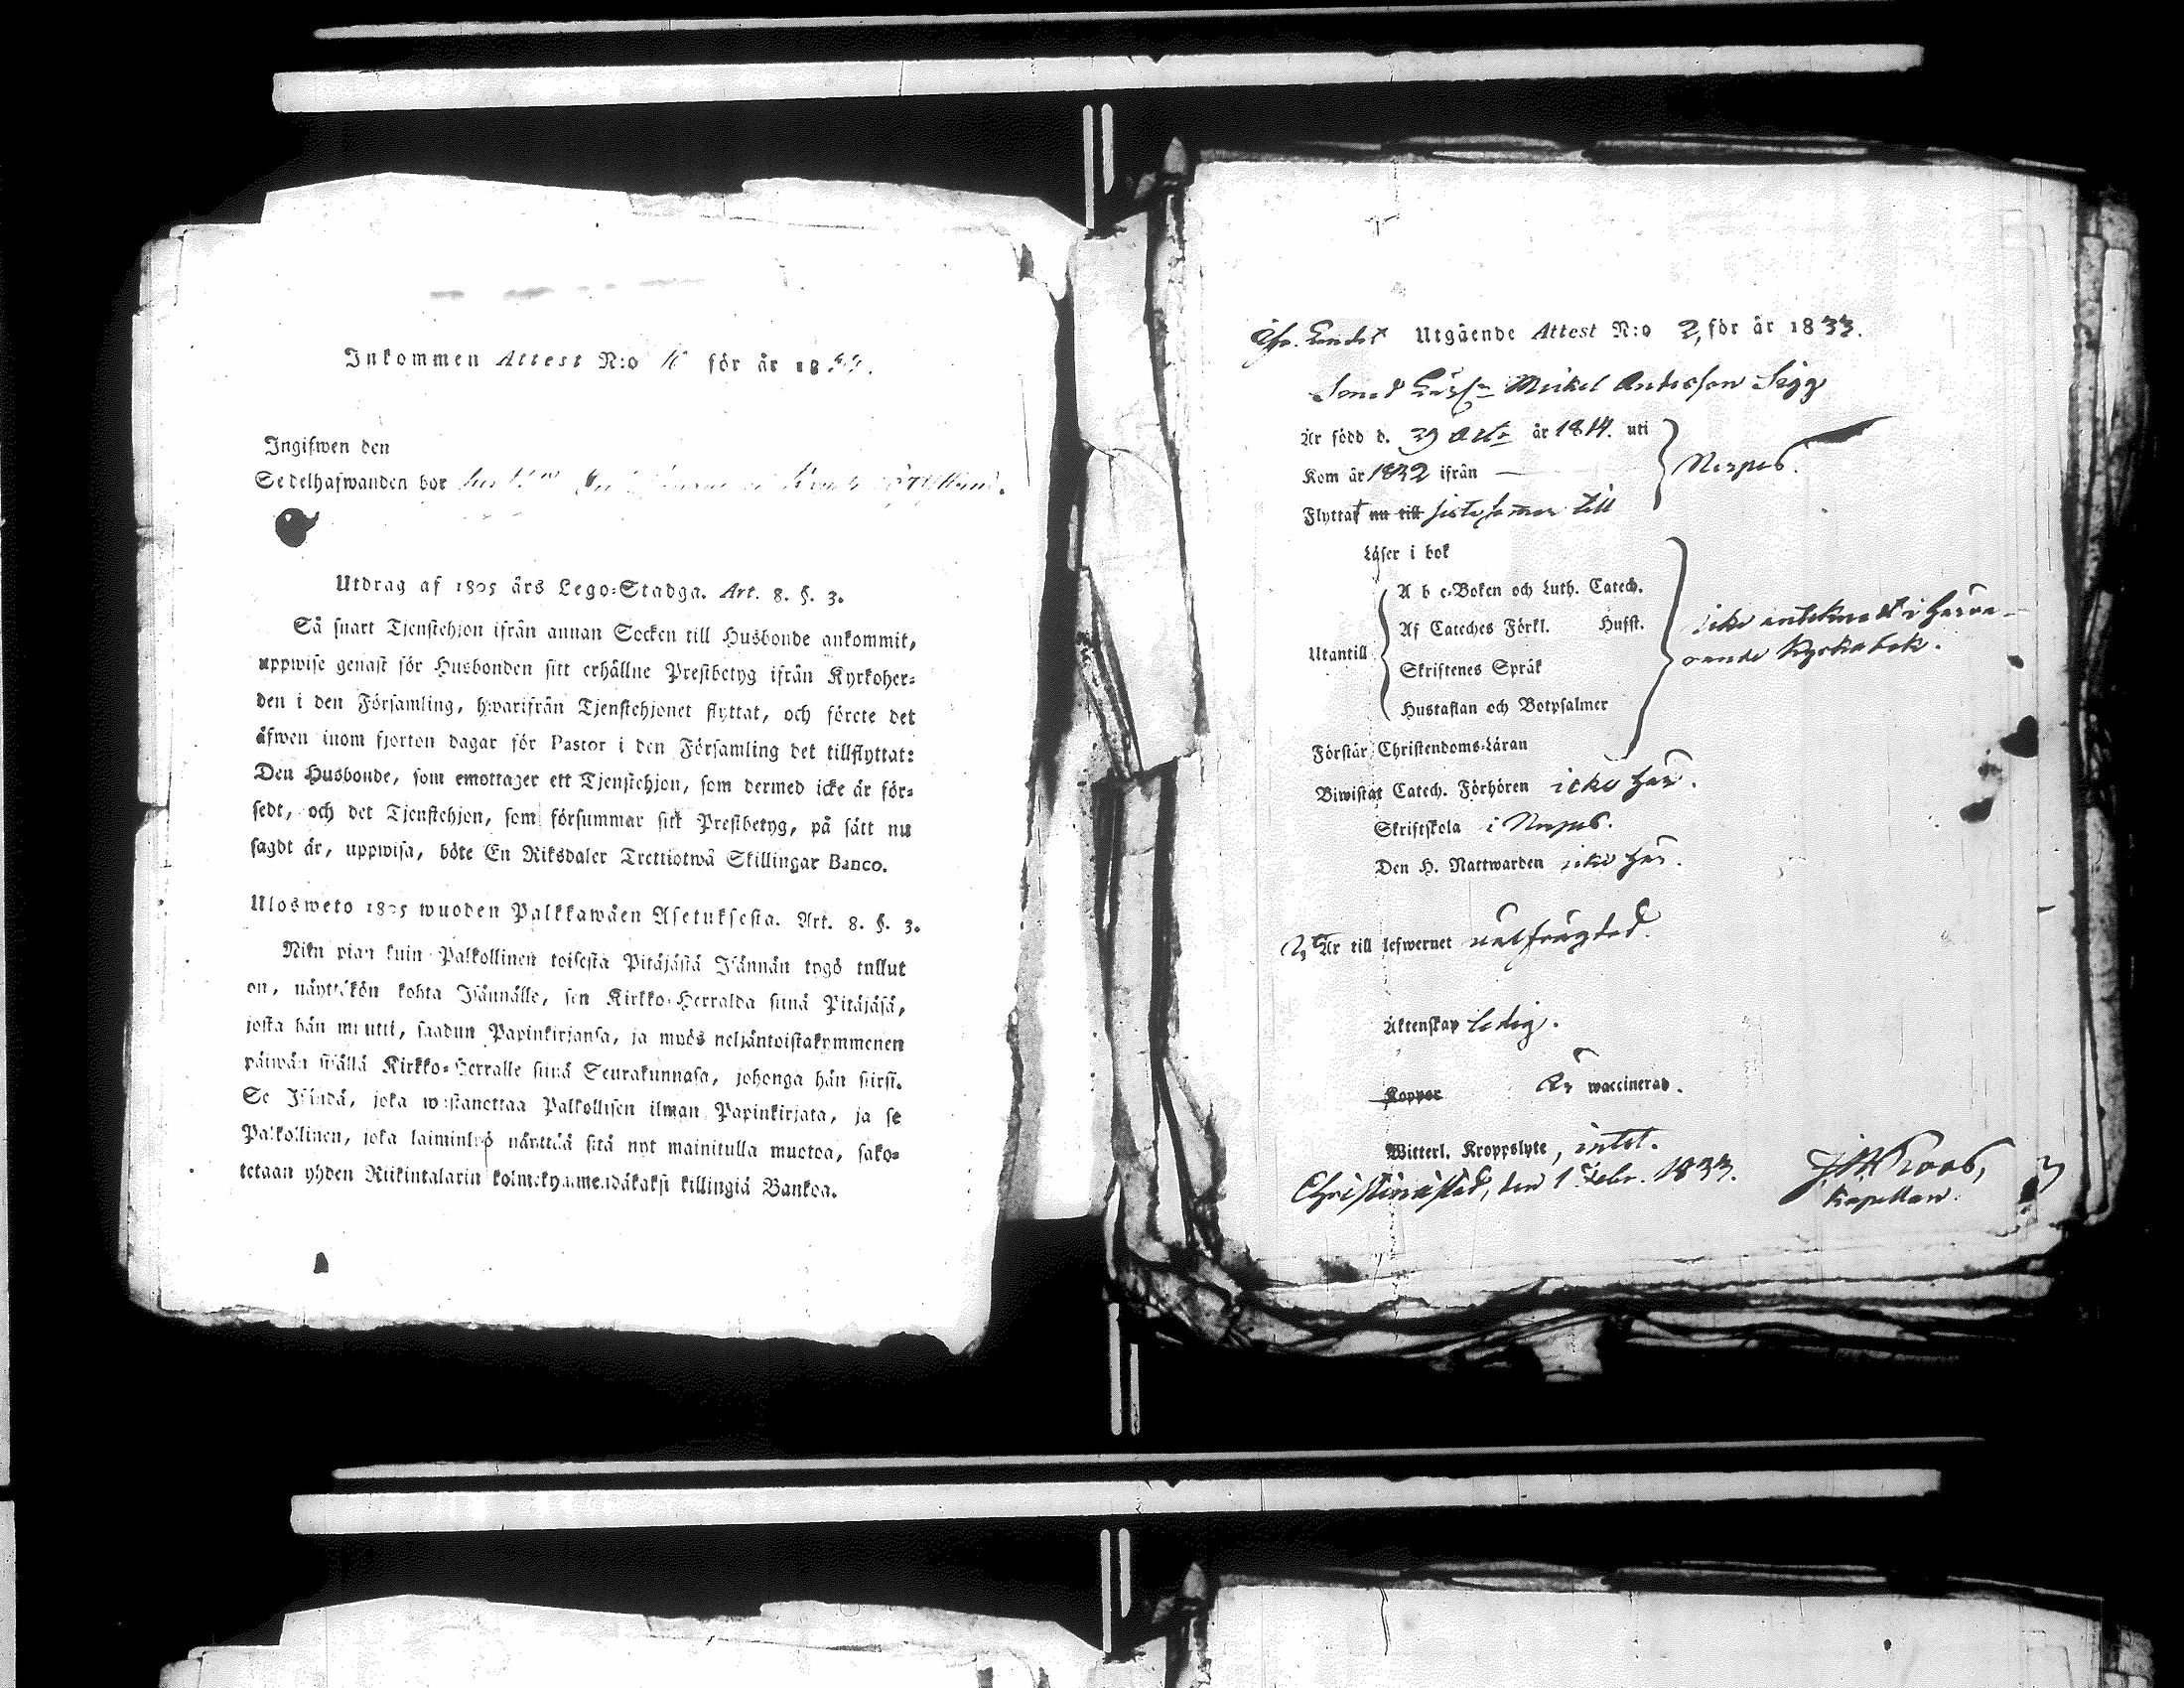 Inkommen Attest N:o för år 18
Ingifwen den
Sedelhafwanden bor
Utdrag af 1805 års Lego-Stadga. Art. 8. §. 3.
Så snart Tjenstehjon ifrån annan Socken till Husbonde ankommit,
uppwise genast för Husbonden sitt erhållne Prestbetyg ifrån Kyrkoher-
den i den Församling, hwarifrån Tjenstehjonet flyttat, och förete det
äfwen inom fjorton dagar för Pastor i den Församling det tillflyttat:
Den Husbonde, som emottager ett Tjenstehjon, som dermed icke är för-
sedt, och det Tjenstehjon, som försummar sitt Prestbetyg, på sätt nu
sagdt är, uppwisa, böte En Riksdaler Trettiotwå Skillingar Banco.
Ulosweto 1805 wuoden Palkkawäen Asetuksesta. Art. 8. §. 3.
Niin pian kuin Palkollinen toisesta Pitäjästä Isännän tygö tullut
on, näyttäkön kohta Isännälle, sen Kirkko-Herralda siinä Pitäjäsä,
josta hän muutti, saadun Papinkirjansa, ja myös neljäntoistakymmenen
päiwän sisällä Kirkko-Herralle siinä Seurakunnasa, johonga hän siirsi.
Se Isändä, joka wastanottaa Palkollisen ilman Papinkirjata, ja se
Palkollinen, joka laiminlyö näyttää sitä nyt mainitulla muotoa, sako-
tetaan yhden Riikintalarin kolmekymmendäkaksi killingiä Bankoa.
Utgående Attest N:o 2, för år 1833.
Mickel Andersson Sigg
Är född d. 29 Octr år 1814. uti
Kom år 1832 ifrån — Nerpes.
Flyttat nu till sistl. sommar till
Läser i bok
A b c-Boken och Luth. Catech.
Af Cateches Förkl. Husst.
icke antecknadt i härva-
Utantill
rande Kyrkobok.
Skriftenes Språk
Hustaflan och Botpsalmer
Förstår Christendoms-Läran
Biwistat Catech. Förhören icke här.
Skriftskola i Nerpes.
Den H. Nattwarden icke här.
Är till lefwernet välfrägdad.
Äktenskap ledig.
Koppor Är waccinerad.
Witterl. Kroppslyte, intet.
Christinæstad, den 1 Febr. 1833.
Kapellan.